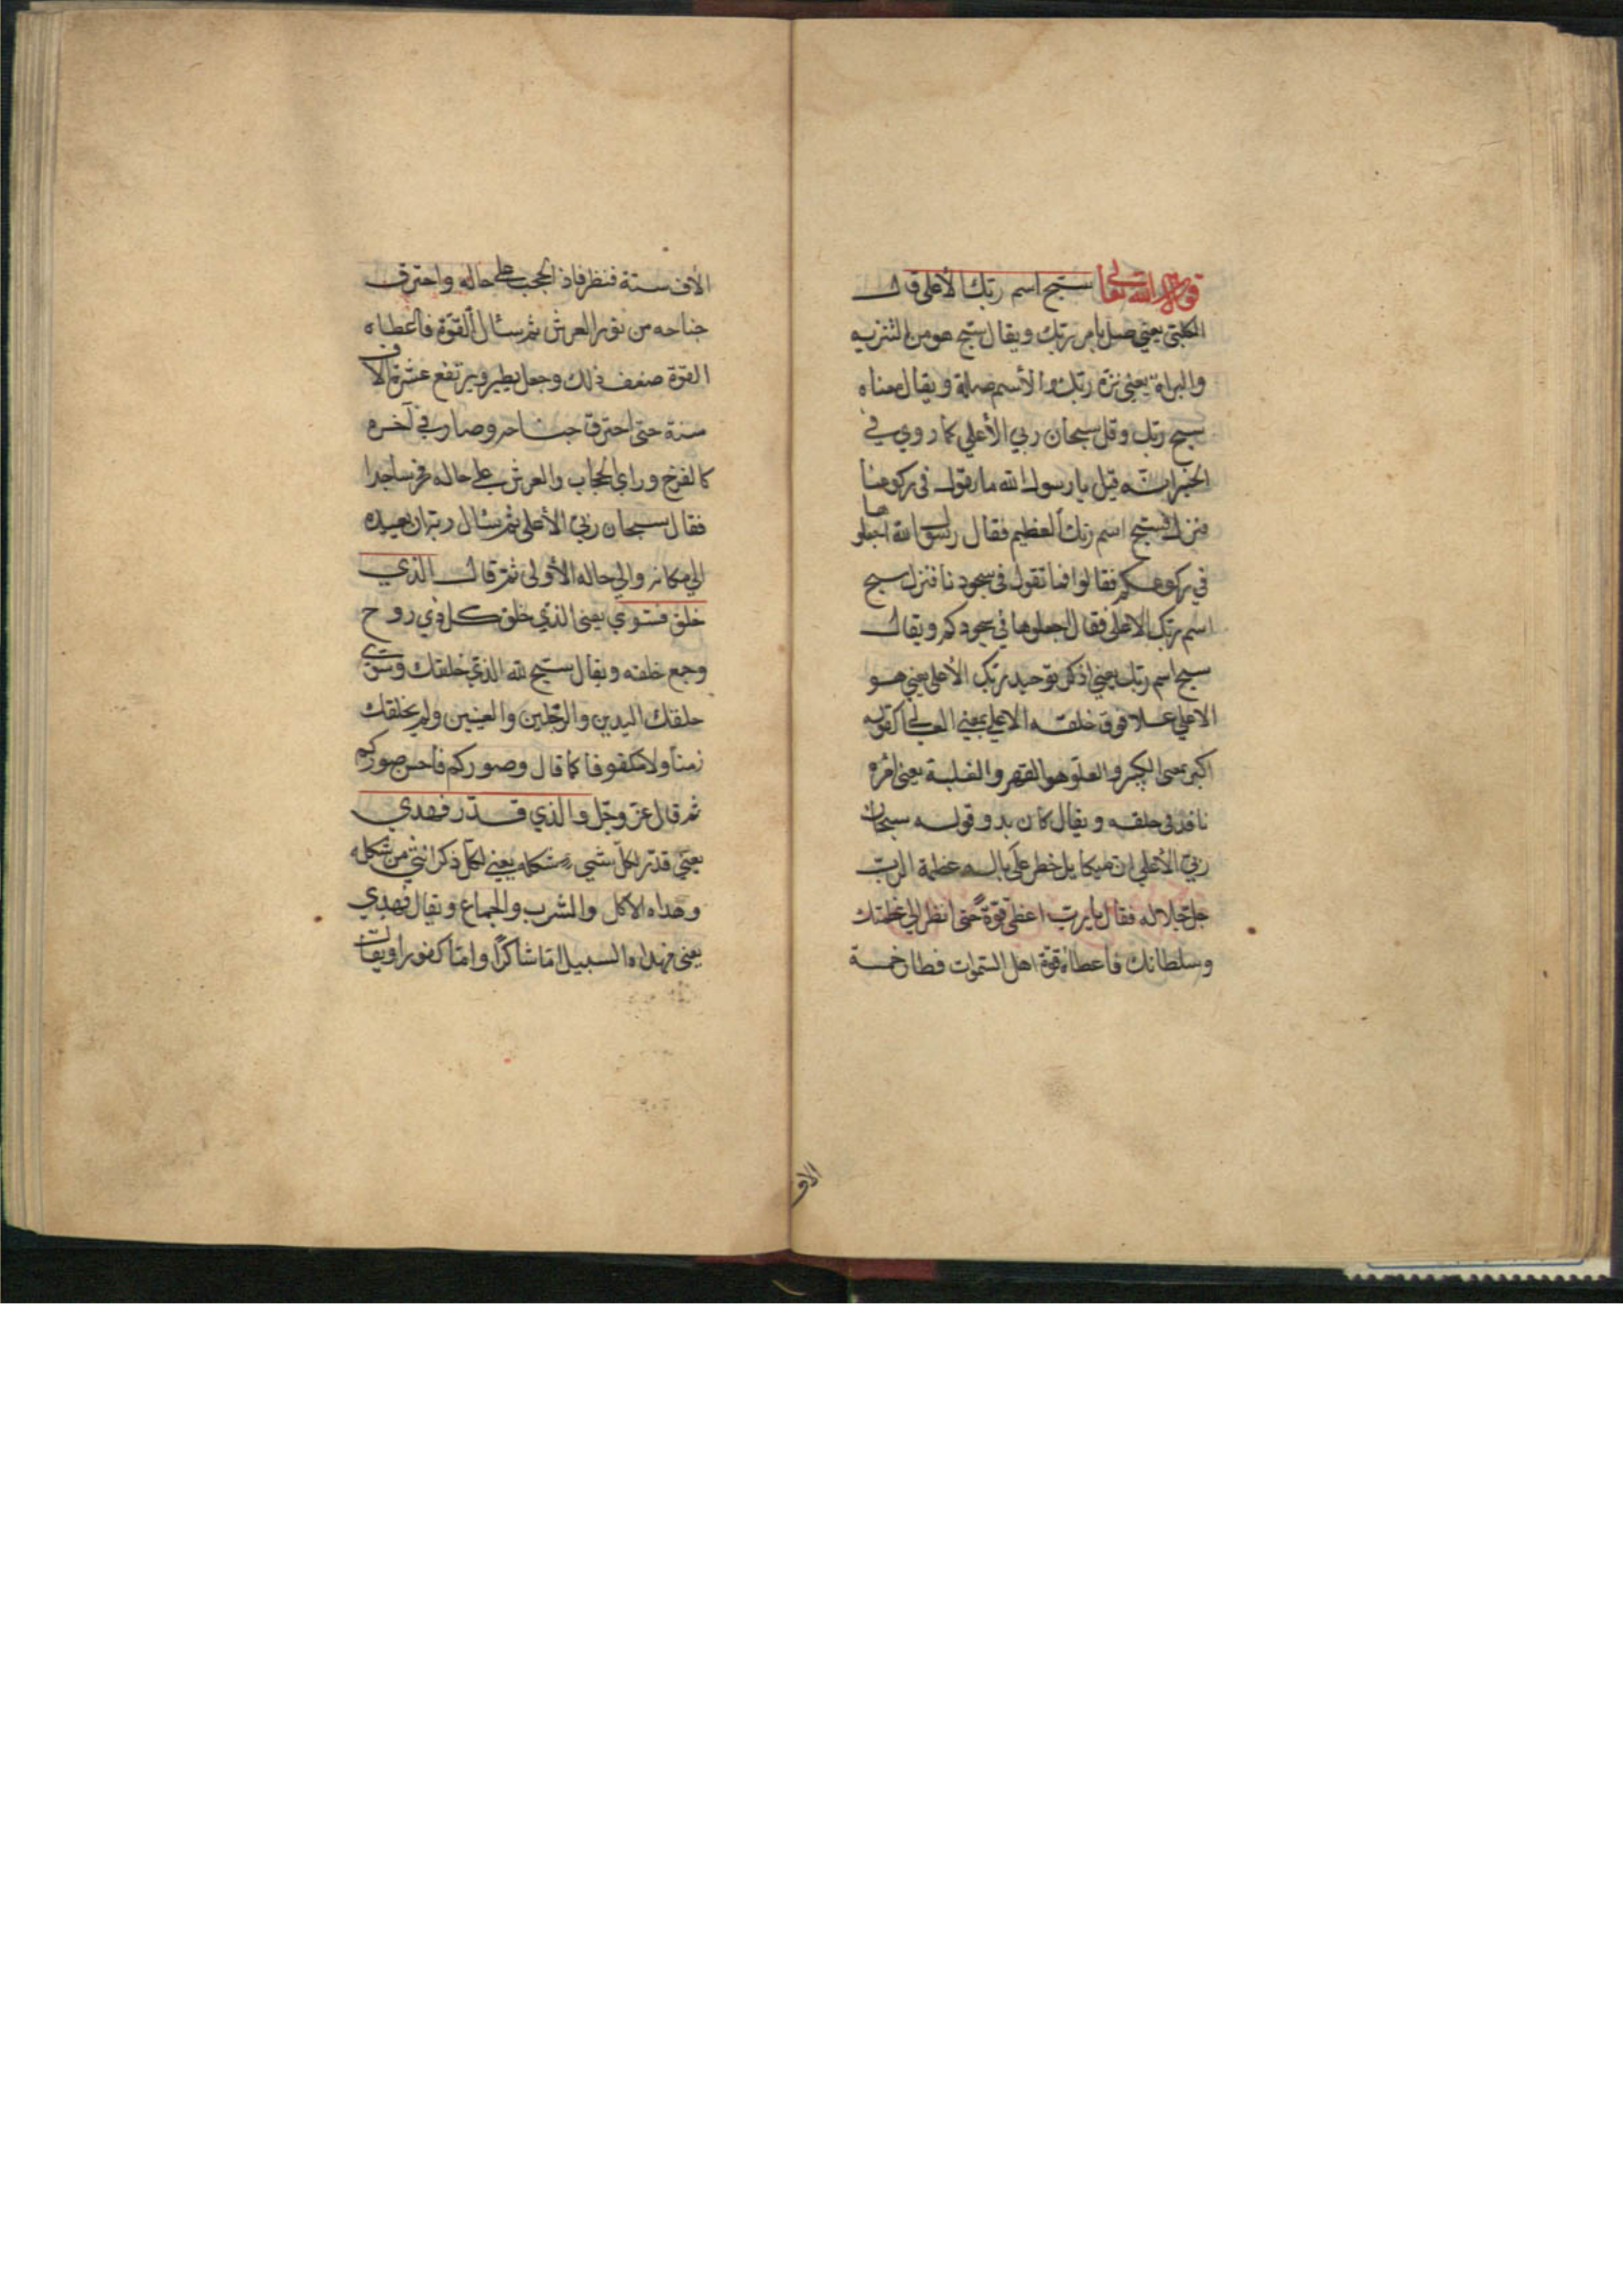 قول الله تعالى سبّح اسم ربّك الأعلى قال
الكلبيّ يعني صل بامر ربّك ويقال سبّح هو من التنزيه
والبراة يعني نزّه ربّك والأسم صلة ويقال معناه
سبح ربّك وقل سبحان ربي الأعلى كما روي في
الخبر انّه قيل يا رسول الله ما نقول في ركوعنا
فنزل فسبّح اسم ربّك العظيم فقال رسول الله اجعلوها
في ركوعكم فقالوا فما نقول في سجودنا فنزل سبح
اسم ربّك الاعلى فقال اجعلوها في سجودكم ويقال
سبح اسم ربّك يعني اذكر توحيد ربّك الأعلى يعني هو
الاعلى علا فوق خلقه الاعلى بمعنى العالي كقوله
اكبر بمعنى الكبير والعلو هو القهر والغلبة يعني امره
نافذ في خلقه ويقال كان بدو قوله سبحان
ربيّ الأعلى ان ميكايل خطر على باله عظمة الربّ
جلّ جلاله فقال يا ربّ اعطني قوّة حتى انظر الى عظمتك
وسلطانك فاعطاه قوّة اهل السّموات فطار خمسة
الاف
الأف سنة فنظر فاذ الحجب على حاله واحترق
جناحه من نور العرش ثم سئال القوّة فأعطاه
القوّة ضعف ذلك وجعل يطير ويرتفع عشرة الاف
سنة حتى احترق جناحه وصار في آخره
كالفرخ وراى الحجاب والعرش على حاله فخر ساجدا
فقال سبحان ربيّ الأعلى ثم سئال ربّه ان يعيده
الى مكانه والى حاله الأولى ثمّ قال الّذي
خلق فسّوي يعني الذي خلق كل ذي روح
وجمع خلقه ويقال سبّح لله الذي خلقك وسّوى
خلقك اليدين والرّجلين والعينين ولم يخلقك
زمنًا ولا مكفوفا كما قال وصوركم فأحسن صوركم
ثم قال عزّ وجّل والذي قدّر فهدي
يعني قدّر لكلّ شيء شكله يعني لكلّ ذكر انثى من شكله
وهداه الاكل والشرب والجماع ويقال فهدي
يعني فهداه السبيل امّا شاكرًا وامّا كفورا ويقال